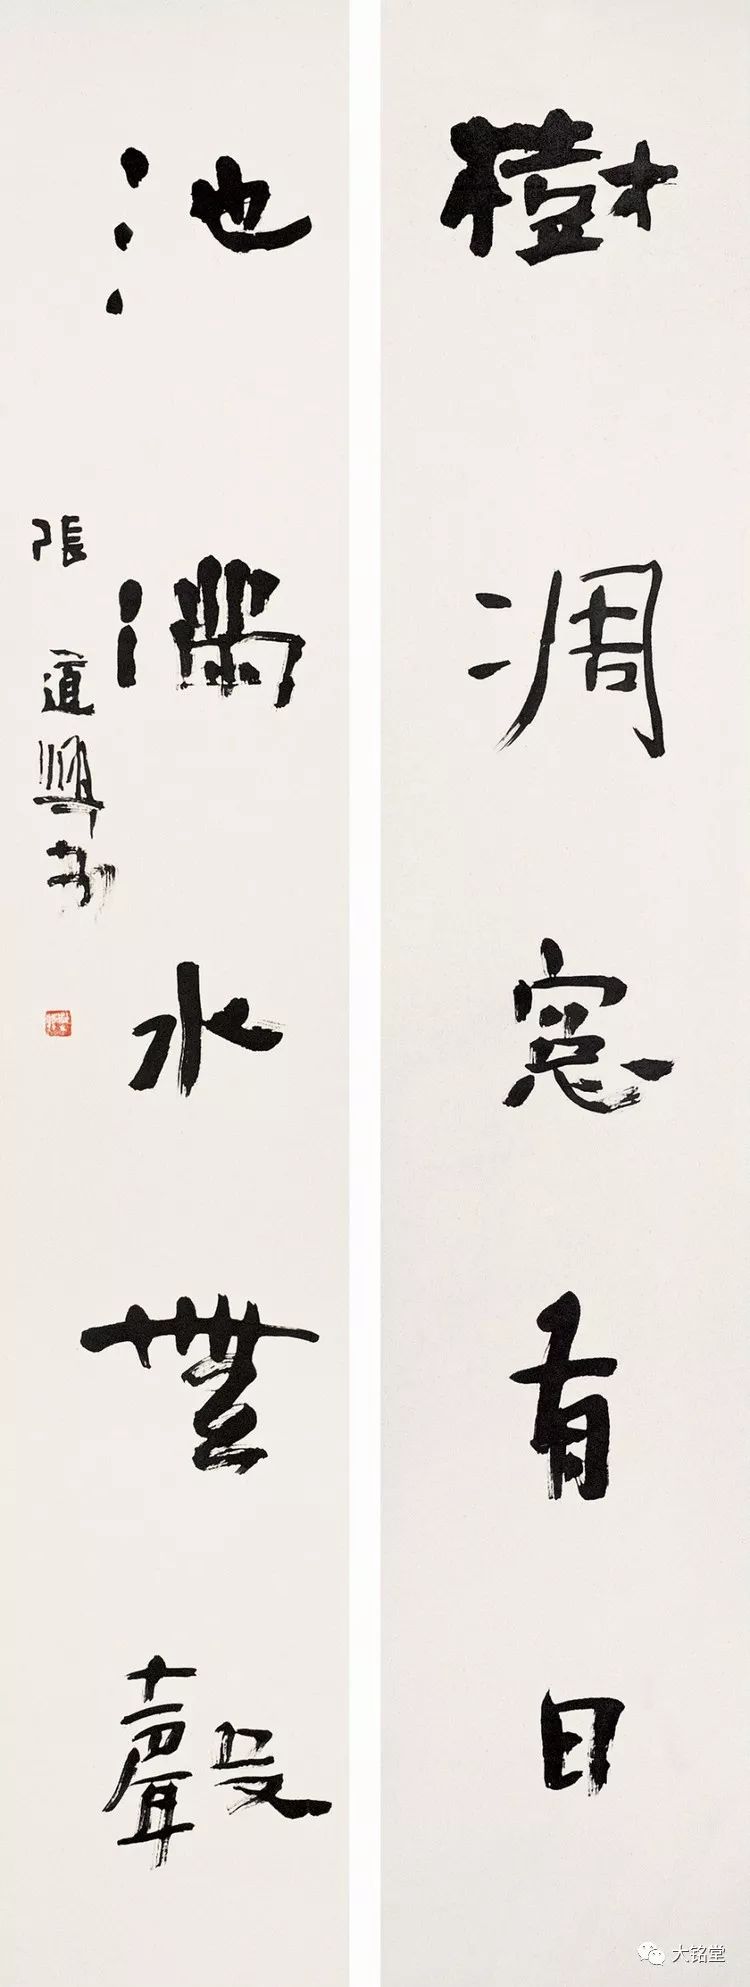 樹凋窓有日
池滿水無聲
張道興書
大铭堂